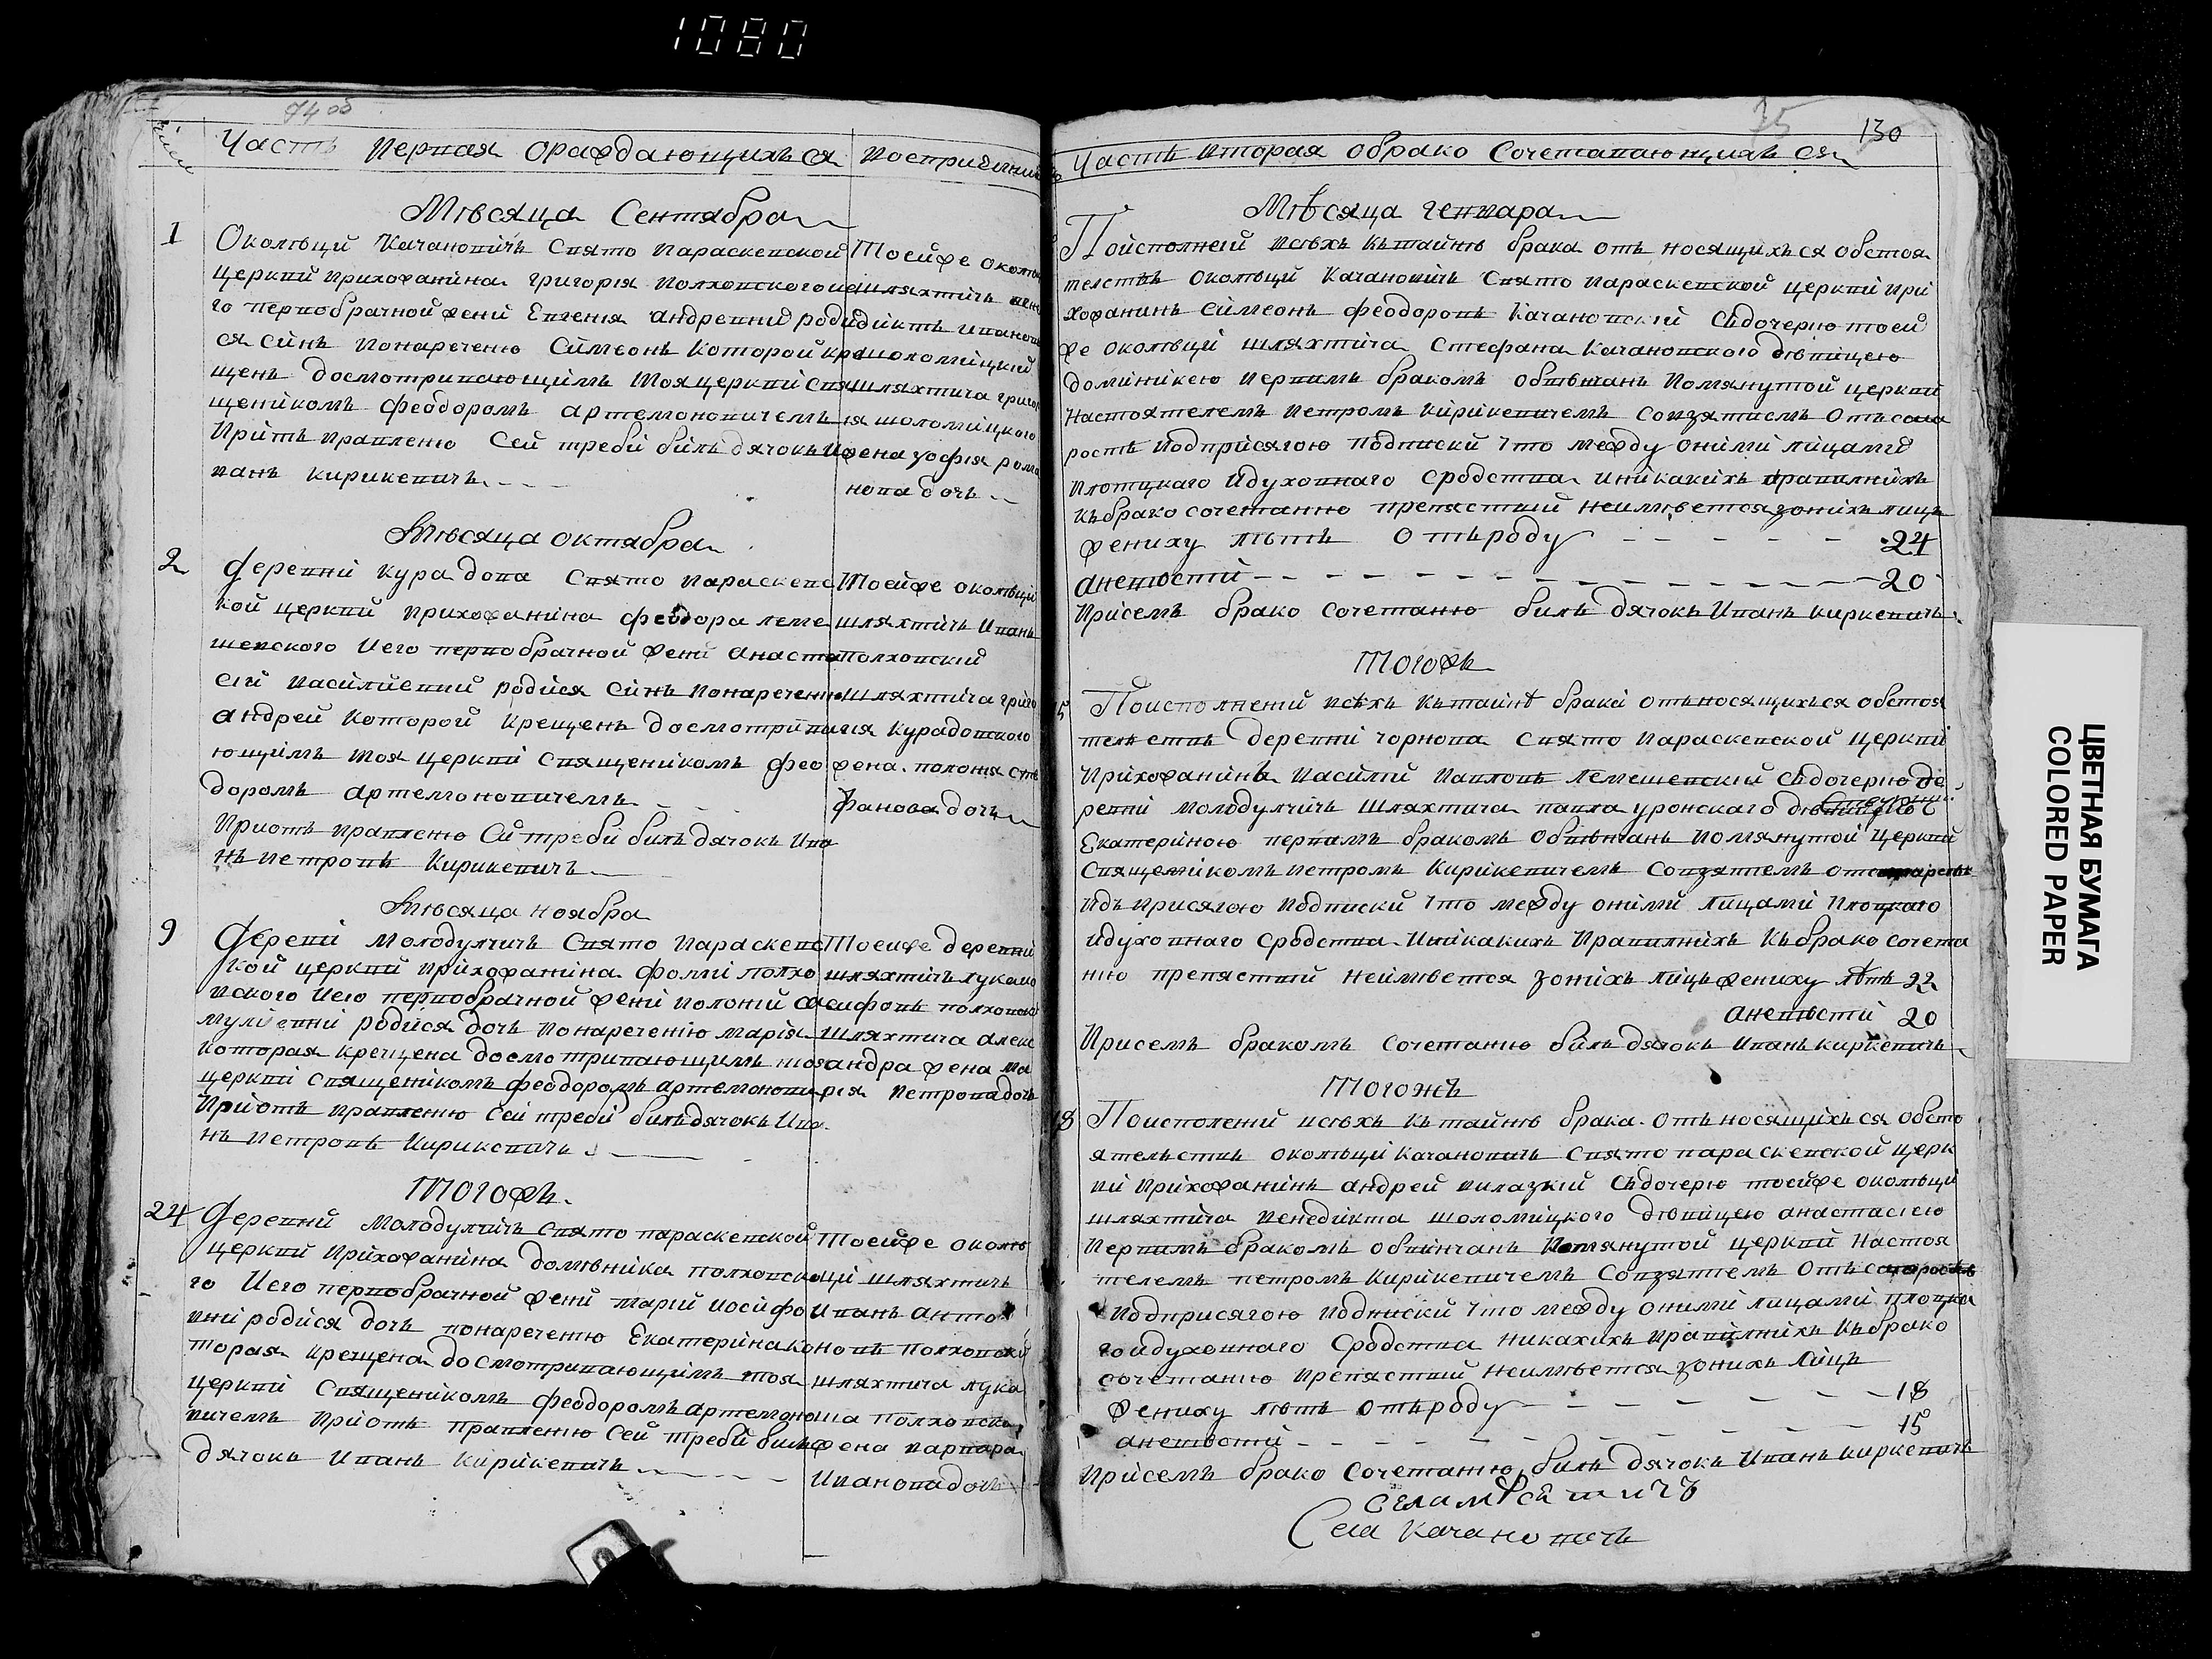 1080
74 об
Часть Первая ораждающихъся
Восприемники
Мѣсяца Сентября
1
Околѣцы Качановичъ Свято Параскевской
церквы Прихожанина григорія Волховского иє
го первобрачной жены Евгенія андревны роди
ся сынъ Понареченю Симеонъ Которой кре
щенъ досмотривающимъ тоя церквы свя
щеникомъ феодоромъ артемоновичемъ
Приотъ правленю Сей требы былъ дячокъ И
ванъ Кирикевичъ
Тоейже околѣ
шляхтичъ вене
диктъ ивановъ
шоломицкий
шляхтича григо
рія шоломицкого
жена зофія рома
нова дочь
Мѣсяца октября
2
Деревни Курадова Свято Параскевс
кой церквы Прихожанина феодора леме
шевского Иего первобрачной жены анаста
сіи василиевны родися Сынъ Понаречению
андрей Которой Крещенъ досмотрива
ющимъ тоя церквы Священикомъ фео
доромъ артемоновичемъ
Приотъ правленю Сй требы былъ дячокъ Ива
нъ петровъ Кирикевичъ
Тоейже околѣцы
шляхтичъ Иванъ
волховский
шляхтича григо
рія Курадовского
жена полонія сте
фанова дочь
Мѣсяца ноября
9
Деревни Молодулчичъ Свято Параскевс
кой церквы Прихожанина фомы волхо
вского Иего первобрачной жены Полоніи са
муліевны родися дочь Понареченію марія
Которая Крещена досмотривающимъ тоя
церквы Священикомъ феодоромъ артемонови
Приотъ правленю Сей требы былъ дячокъ Ива
нъ Петровъ Кирикевичъ
Тоейже деревни
шляхтичъ лукаш
осифовъ волховский
шляхтича алекс
андра жена ма
рія Петрова дочь
Тогожъ
24
Деревни Молодулчичъ Свято параскевской
церквы Прихожанина домѣника волховско
го Иего первобрачной жены маріи иосифо
вны родися дочь понареченю Екатерина ко
торая крещена досмотривающимъ тоя
церквы Священикомъ феодоромъ артемоно
вичемъ Приотъ правленю Сей требы былъ
дячокъ Иванъ Кирикевичъ
Тоейже околѣ
цы шляхтичъ
Иванъ анто
новъ волховский
шляхтича лука
ша волховско
жена варвара
Иванова дочь
75
130
Часть вторая обрако Сочетавающихъ ся
Мѣсяца генвара
Поисполнеий всѣхъ Къ тайнѣ брака отъ носящихъся обстоя
телствъ околѣцы Качановичъ Свято Параскевской церквы При
хожанинъ Симеонъ феодоровъ Качановский Сьдочерю тоей
же околѣцы шляхтича Стефана Качановского дѣвицею
доминикею Первимъ бракомъ обвѣнчанъ Помянутой церквы
Настоятелемъ Петромъ Кирикевичемъ Совзятиемъ Отъ
рость Подприсягою Подписки Что между онимы лицами
Плотцкаго Идуховнаго Сродства иникакихъ правилнихъ
Къбрако сочетанию препятствий неимѣется зонихъ лицъ
жениху лѣтъ Отъроду 24
аневѣстѣ 20
Присемъ брако Сочетаню билъ дячокъ Иванъ Киркевичъ
Тогожъ
15
Поисполнений всѣхъ Къ тайнѣ браки отъносящихъся обстоя
телствъ деревни чорнова Свято Параскевской церквы
Прихожанинъ Василий Павловъ Лемешевский Сьдочерию де
ревни Молодулчичъ шляхтича павла уронскаго
Екатериною первимъ бракомъ Обвѣнчанъ Помянутой церквы
Священикомъ Петромъ Кирикевичемъ Совзятиемъ
Подъ Присягою Подписки Что между онимы лицами Плоцкаго
Идуховнаго Сродства Иникакихъ Правилнихъ Къ брако сочета
нию препятствий неимѣется зонихъ лицъ жениху лѣтъ 22
аневѣстѣ 20
Присемъ бракомъ Сочетанию билъ дячокъ Иванъ киркевичъ
Тогожъ
18
Поисполений всѣхъ Къ тайнѣ брака Отъ носящихъ ся обсто
ятелствъ околѣцы Качановичъ Свято параскевской церк
вы Прихожанинъ андрей вилазкий Сьдочерю тоейже околѣцы
шляхтича Венедикта шоломицкого дѣвицею анастасиею
Первимъ бракомъ обвинчанъ Помянутой церквы Настоя
телемъ петромъ Кирикевичемъ Совзятиемъ Отъ
Подприсягою Подписки Что между онимы лицами плоцка
го идуховнаго Сродства никакихъ Правилнихъ Къбрако
сочетанию Препятствий неимѣется зонихъ лицъ
жениху лѣтъ отъроду 18
аневѣстѣ 15
Присемъ брако Сочетанию билъ дячокъ Иванъ Киркевичъ
Села Качановичъ
ЦВЕТНАЯ БУМАГА
COLORED PAPER